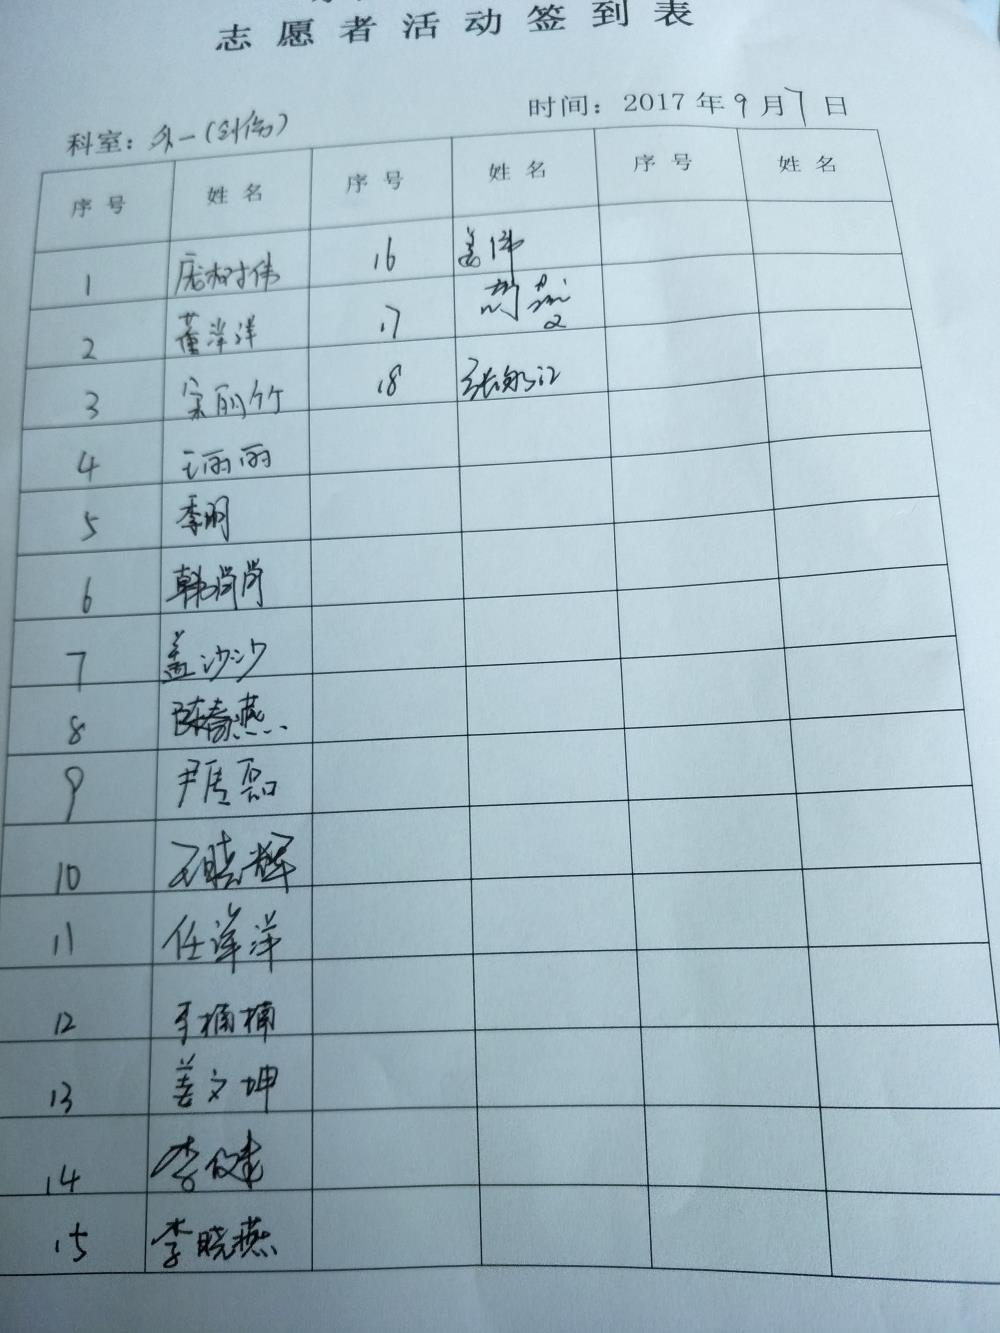 志愿者活动签到表
时间：2017年9月7日
科室：外一（创伤）
序号 姓名 序号 姓名 序号 姓名
1 庞树伟 16 姜伟
2 董洋洋 17
3 宋丽竹 18
4 王丽丽
5 李明
6 韩尚尚
7 盖沙沙
8 陈春燕
9 尹传磊
10 王晓辉
11 任洋洋
12 于楠楠
13 姜文坤
14 李俊建
15 李晓燕